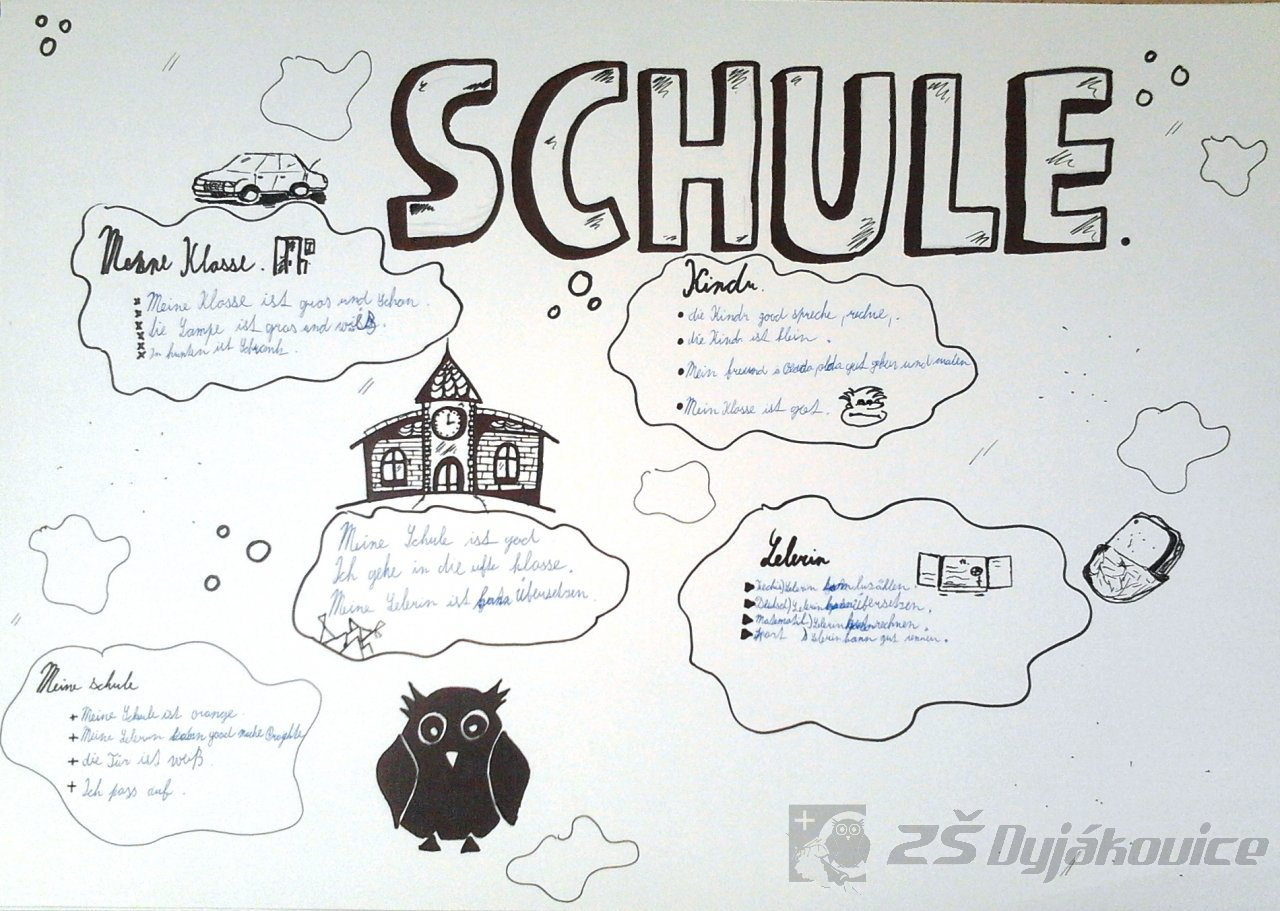 SCHULE.
Meine Klasse.
Meine Klasse ist gros und schon.
die Lampe ist gros und weiß.
In hunten ist Schrank.
Kindr.
die Kindr good spreche, rechne,.
die Kindr ist klein.
Mein freund gut gehen und malen
Mein Klasse ist gut.
Meine Schule ist good
Ich gehe in die klasse.
Meine Lelerin ist Übersetzen.
Lelerin
Lelerin
Deutsch) Lelerin Übersetzen.
Matematik) Lelerin rechnen.
Sport Lelerin kann gut
Meine schule
Meine Schule ist orange.
Meine Lelerin good mache Projekte
die Tür ist weiß.
Ich pass auf.
ZŠ Dyjákovice